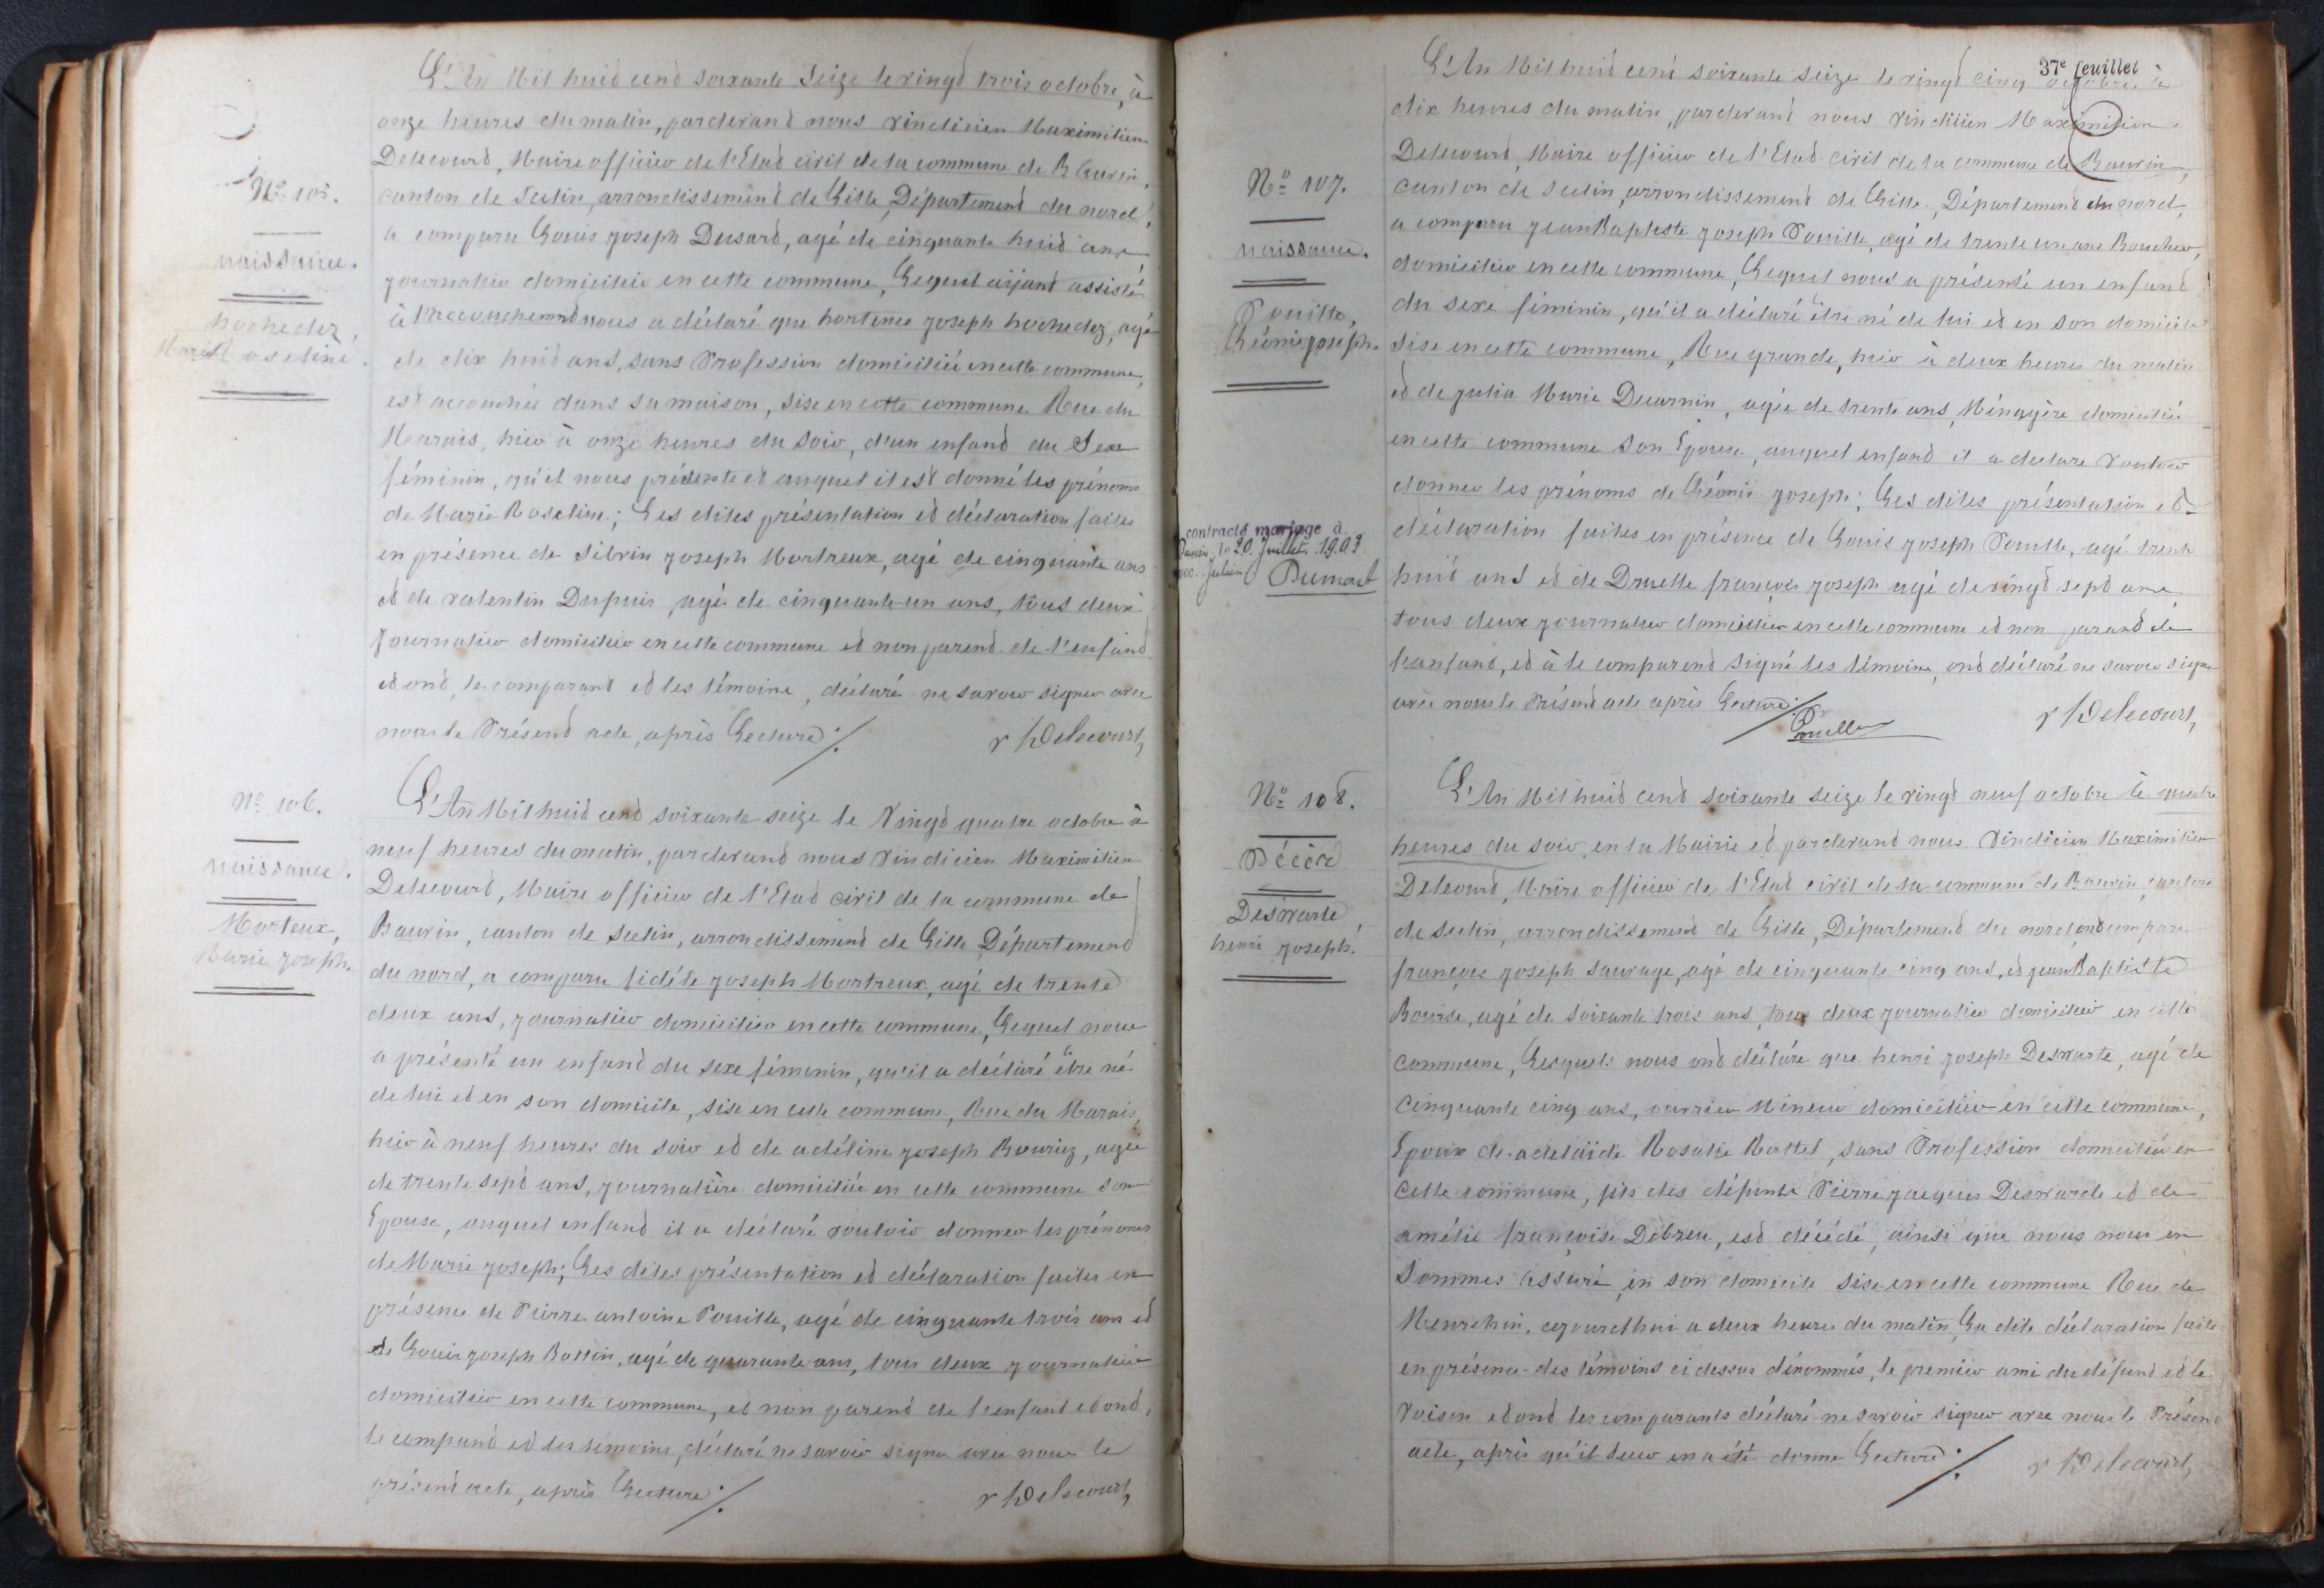 L'An Mil huid cend soixante Seize le vingd trois octobre, à
onze heures du matin, pardevand nous vindicien Maximilien
Delecourd, Maire officier de l'Etad civil de la commune de Bauvin,
canton de Seclin, arrondissemend de Lille, Départemend du nord,
a comparu Louis joseph Dusard, agé de cinquante huid ans
journalier domicilier en cette commune, Lequel aijand assisté
à l'accouchemend nous a déclaré que hortence joseph hochedez, agé
de dix huid ans, sans Profession domiciliée en cette commune,
est accouchée dans sa maison, sise en cette commune Rue du
Marais, hier à onze heures du soir, d'un enfand du Sexe
féminin, qu'il nous présente et auquel il est donné les prénoms
de Marie Roseline; Les dites présentation ed déclaration faites
en présence de Silvin joseph Mortreux, agé de cinquante ans
ed de valentin Dupuis, agé de cinquante-un ans, tous deux
journalier domicilier en cette commune ed non parend de l'enfand
ed ond, le comparand ed les témoins, déclaré ne savoir signer avec
nous le Présend acte, après Lecture ./.
v Delecourt
No 105.
naissance.
hochedez
Marie Roseline.
No 106.
naissance.
Morteux,
Marie joseph.
L'An Mil huid cend soixante seize le Vingd quatre octobre à
neuf heures du matin, pardevand nous Vindicien Maximilien
Delecourd, Maire officier de l'Etad civil de la commune de
Bauvin, canton de Seclin, arrondissemend de Lille Départemend
du nord, a comparu fidéle joseph Mortreux, agé de trente
deux ans, journalier domicilier en cette commune, Lequel nous
a présenté un enfand du sexe féminin, qu'il a déclaré être né
de lui ed en son domicile, sise en cette commune, Rue du Marais,
hier à neuf heures du soir ed de adéline joseph Bouriez, agée
de trente sepd ans, journalière domiciliée en cette commune son
Epouse, auquel enfand il a déclaré vouloir donner les prénoms
de Marie joseph; Les dites présentation ed déclaration faites en
présence de Pierre antoine Pouille, agé de cinquante trois ans ed
de Louis joseph Battin, agé de quarante ans, tous deux journalier
domicilier en cette commune, ed non parend de l'enfant ed ond,
le compand ed les témoins, déclaré ne savoir signer avec nous le
présend acte, après Lecture ./.
v Delecourt
37e feuillet
L'An Mil huid cend soixante seize le vingd cinq octobre à
dix heures du matin, pardevand nous vindicien Maximilien
Delecourd, Maire officier de l'Etad civil de la commune de Bauvin,
canton de Seclin, arrondissemend de Lille, Départemend du nord,
a comparu jean Baptiste joseph Pouille, agé de trente un ans Boucher,
domicilier en cette commune, Lequel nous a présenté un enfand
du sexe féminin, qu'il a déclaré être né de lui ed en son domicile
sise en cette commune, Rue grande, hier à deux heures du matin
ed de julia Marie Decarnin, agée de trente ans, Ménagère domiciliée
en cette commune son Epouse, auquel enfand il a declare vouloir
donner les prénoms de Léonie joseph; Les dites présentation ed
déclaration faites en présence de Louis joseph Pouille, agé trente
huid ans ed de Druelle françois joseph agé de vingd sepd ans
tous deux journalier domicilier en cette commune ed non parand de
l'anfand, ed à le comparend signé les témoins, ond déclaré ne savoir signer
avec nous le Présend acte après Lecture ./.
Pouille
v Delecourt
No 107.
naissance.
Pouille,
Léonie joseph.
contracté mariage à
Bauvin, le 20 Juillet 1903
avec Julien Dumont
No 108.
Décès
Deswarte
henri joseph.
L'An Mil huid cend soixante seize le vingd neuf octobre à quatre
heures du soir, en la Mairie ed pardevand nous Vindicien Maximilien
Delecourd, Maire officier de l'Etad civil de la commune de Bauvin, canton
de Seclin, arrondissemend de Lille, Départemend du nord ond comparu
françois joseph Sauvage, agé de cinquante cinq ans, ed jean Baptiste
Bourse, agé de soixante trois ans, tous deux journalier domicilier en cette
commune, Lesquels nous ond déclaré que henri joseph Deswarte, agé de
cinquante cinq ans, ouvrier Mineur domicilier en cette commune,
Epoux de adelaïde Rosalie Rattel, sans Profession domiciliée en
cette commune, fils des défunts Pierre jacques Deswarte ed de
amélie françoise Debreu, esd décédé, ainsi que nous nous en
Sommes assuré, en son domicile sise en cette commune Rue de
Meurchin, cejourdhui a deux heures du matin, La dite déclaration faite
en présence des témoins ci dessus dénommés, le premier ami du défund ed le
voisin ed ond les comparants déclaré ne savoir signer avec nous le Présend
acte, après qu'il leur en a été donne Lecture ./.
v Delecourt